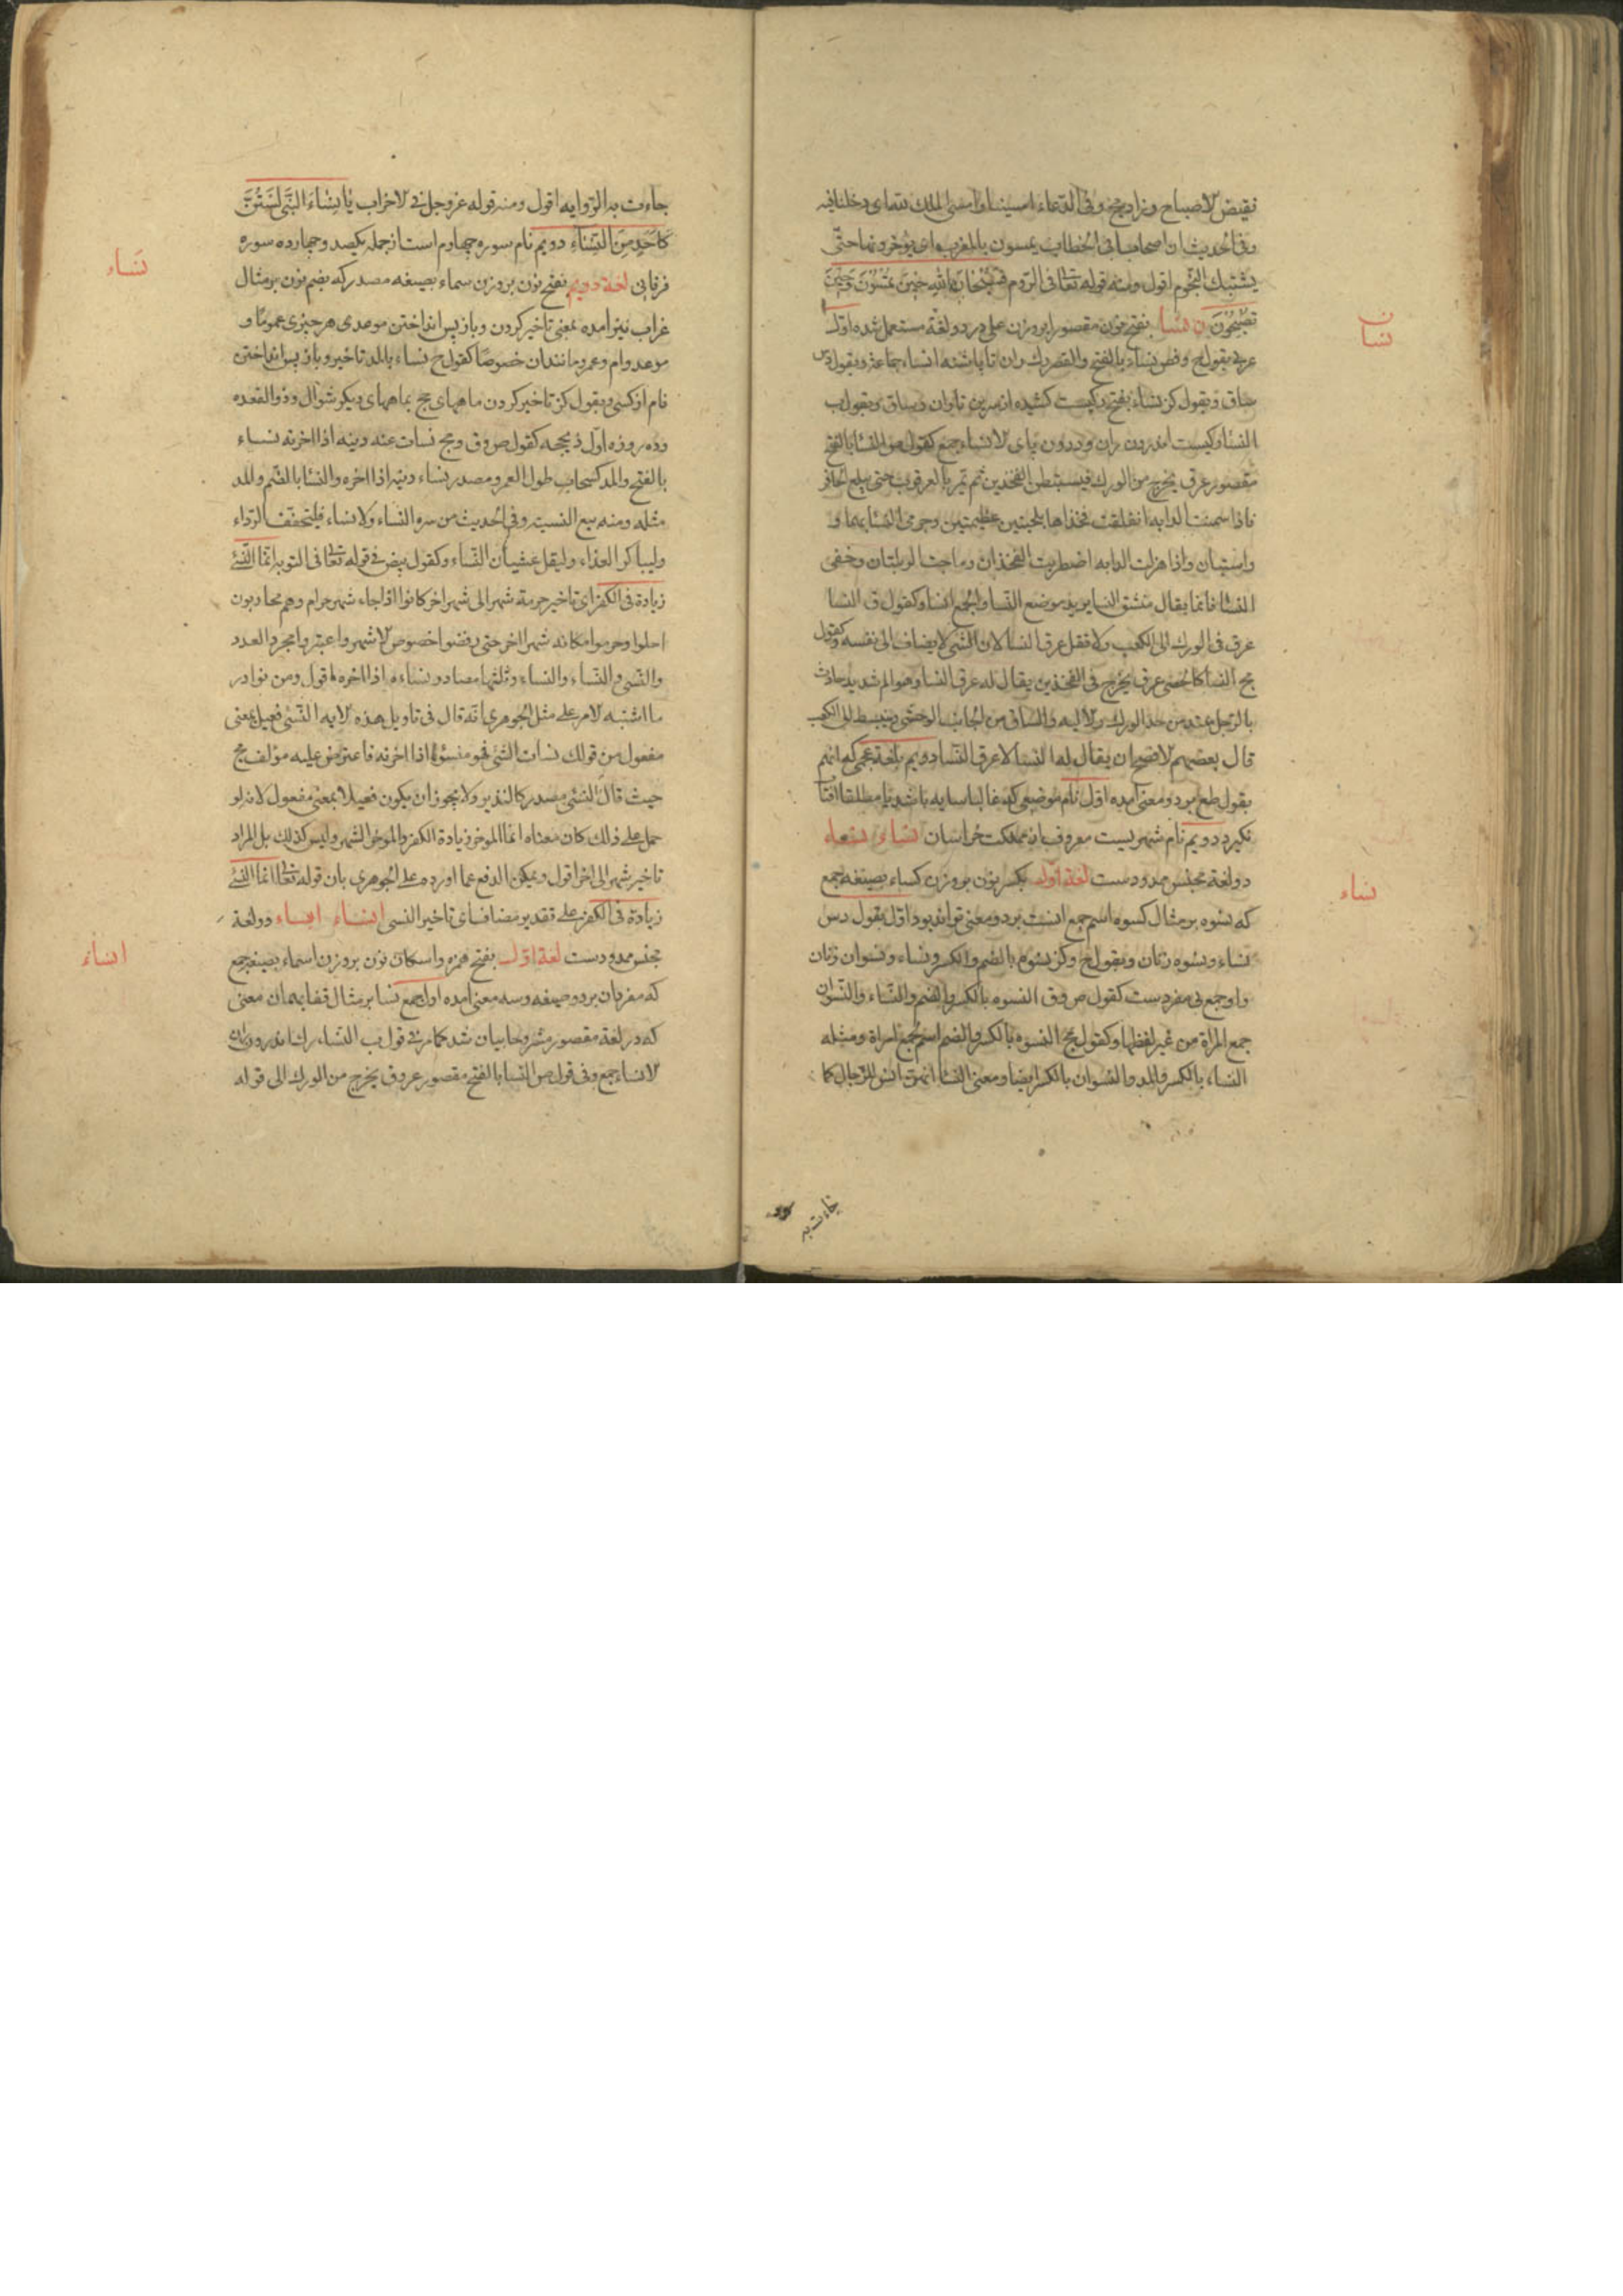 نقیض الاصباح و زاد یخ وفی الدعاء امسینا وامسی الملک لله ای دخلنا فیه
وفی الحدیث ان اصحاب ابی الخطاب یمسون بالمغرب ای یؤخرونها حتی
یشتبک النجوم اقول ومنه قوله تعالی فی الروم فسبحان الله حین تمسون وحین
تصبحون نسا بفتح نون مقصورا بر وزن علی در دو لغة مستعمل شده اول
نسا
عربی بقول بالفتح والقصر رک ران تا پاشنه انساء جماعة وبقول
ساق وبقول کز نساء بفتح رکیست کشیده از سرین تا ران وساق وبقول ب
النسا رکیست اندرون ران و درون پای الانساء جمع کقول ص النسا بالفتح
مقصور عرق یخرج من الورک فیستبطن الفخذین ثم یمر بالعرقوب حتی یبلغ الحافر
فاذا سمنت الدابه انفلقت فخذاها بلحمتین عظیمتین وجری النسا بینهما و
واستبان واذا هزلت الدابه اضطربت الفخذان وماجت الربلتان وخفی
النسا فانما یقال منشق النسا یرید موضع النسا والجمع انسا وکقول ق النسا
عرق فی الورک الی الکعب ولا تقل عرق النسا لان الشیء لا یضاف الی نفسه وکقول
مج النسا کالحصی عرق یخرج فی الفخذین یقال له عرق النسا وهو الم شدید حادث
بالرجل عند من حد الورک والالیه والساق من الجانب الوحشی وینبسط الی الکعب
قال بعضهم الافصح ان یقال له النسا لا عرق النسا دویم بلغة عجمی که انهم
بقول طع بر دو معنی آمده اول نام موضعی که غالبا سایه باشد یا مطلقا آفتاب
نگیرد دویم نام شهریست معروف از مملکت خراسان نساء نسعاء
دو لغة بجنس ممدودست لغة اول بکسر نون بر وزن کساء بصیغه جمع
نساء
که نسوه بر مثال کسوه اسم جمع انست بر دو معنی تواند بود اول بقول دس
نساء ونسوه زنان وبقول خ وکز نسوه بالضم والکسر ونساء ونسوان زنان
واو جمع بی مفردست کقول ص وق النسوه بالکسر والضم والنساء والنسوان
جمع المراة من غیر لفظها وکقول مج النسوه بالکسر والضم اسم لجمع امراة ومثله
النساء بالکسر والمد والنسوان بالکسر ایضا ومعنی النسا انهن انس للرجال کما
جاءت به
جاءت به الروایه اقول ومنه قوله عز وجل فی الاحزاب یا نساء النبی لستن
کاحد من النساء دویم نام سوره چهارم است از جمله یکصد وچهارده سوره
نساء
فرقانی لغة دویم بفتح نون بر وزن سماء بصیغه مصدر که بضم نون بر مثال
غراب نیز آمده بمعنی تاخیر کردن وباز پس انداختن موعدی هر چیزی عموما و
موعد وام وعمر ومانند ان خصوصا کقول خ نساء بالمد تاخیر وباز پس انداختن
نام از کسی وبقول کز تاخیر کردن ماههای حج بماههای دیگر شوال وذو القعده
وده روزه اول ذیحجه کقول ص وق ومج نسات عنه دینه اذا اخرته نساء
بالفتح والمد کسحاب طول العمر ومصدر نساء دینه اذا اخره والنسا بالضم والمد
مثله ومنه بیع النسیه وفی الحدیث من سره النساء ولا نساء فلیخفف الرداء
ولیباکر الغذاء ولیقل غشیان النساء وکقول بیض فی قوله تعالی فی التوبه انما النسئ
زیادة فی الکفر ای تاخیر حرمة شهر الی شهر اخر کانوا اذا جاء شهر حرام وهم محاربون
احلوا وحرموا مکانه شهرا اخر حتی رفضوا خصوص الاشهر واعتبروا مجرد العدد
والنسی والنساء والنساء وثلثها مصادر نساءه اذا اخره اقول ومن نوادر
ما اشتبه الامر علی مثل الجوهری انه قال فی تاویل هذه الایه النسئ فعیل بمعنی
مفعول من قولک نسات الشئ فهو منسوء اذا اخرته فاعترض علیه مؤلف مج
حیث قال النسئ مصدر کالنذیر ولا یجوز ان یکون فعیلا بمعنی مفعول لانه لو
حمل علی ذلک کان معناه انما الموخر زیادة الکفر والموخر الشهر ولیس کذلک بل المراد
تاخیر شهر الی اخر اقول ویمکن الدفع عما اورده علی الجوهری بان قوله تعالی انما النسئ
زیادة فی الکفر علی تقدیر مضاف ای تاخیر النسی انساء انساء دو لغة
بجنس ممدودست لغة اول بفتح همزه واسکان نون بر وزن اسماء بصیغه جمع
انساء
که مفرد ان بر دو صیغه وسه معنی آمده اول جمع نسا بر مثال قفا بهمان معنی
که در لغة مقصور مشروحا بیان شد کما مر فی قول ب النساء رک اندرون ران
الانساء جمع وفی قول ص النسا بالفتح مقصور عروق یخرج من الورک الی قوله